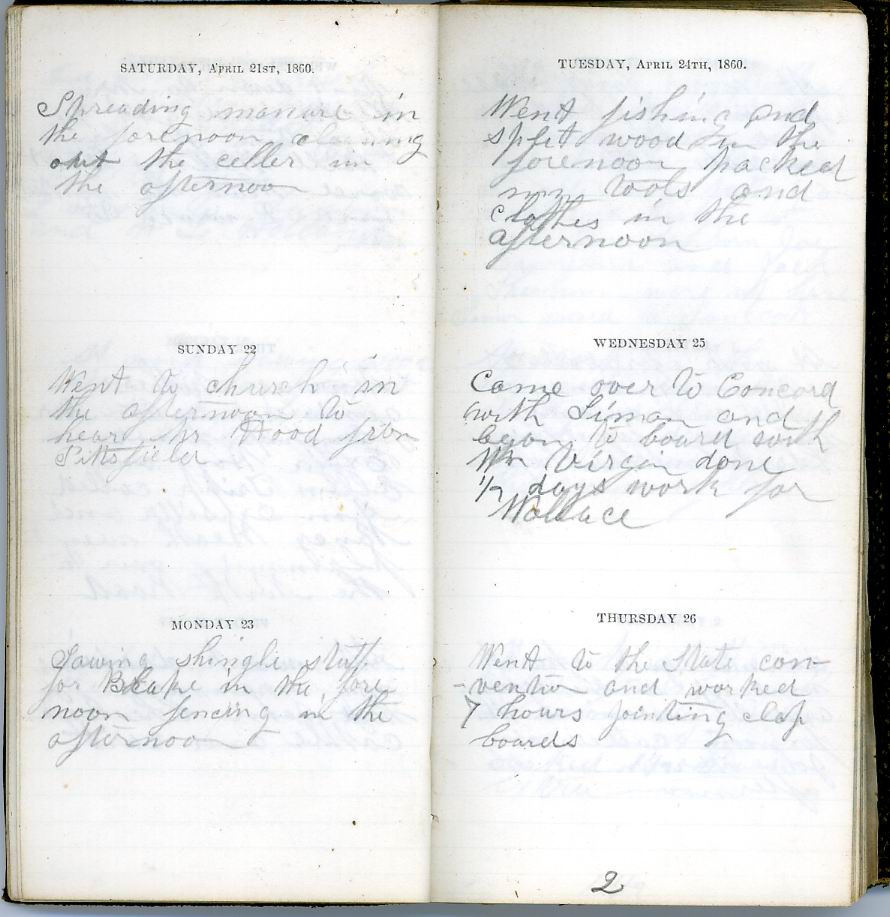 SATURDAY, APRIL 21ST, 1860.
Spreading manure in
the forenoon cleaning
out the celler in
the afternoon
SUNDAY 22
Went to church in
the afternoon to
hear Mr Hood from
Pittsfield
MONDAY 23
Sawing shingle stuff
for Blake in the fore
noon fencing in the
afternoon
TUESDAY, APRIL 24TH, 1860.
Went fishing and
split wood in the
forenoon packed
my tools and
clothes in the
afternoon
WEDNESDAY 25
Came over to Concord
with Siman and
began to board with
Wm Virgin done
1/2 days work for
Wallace
THURSDAY 26
Went to the State con-
-vention and worked
7 hours jointing clap
boards
2